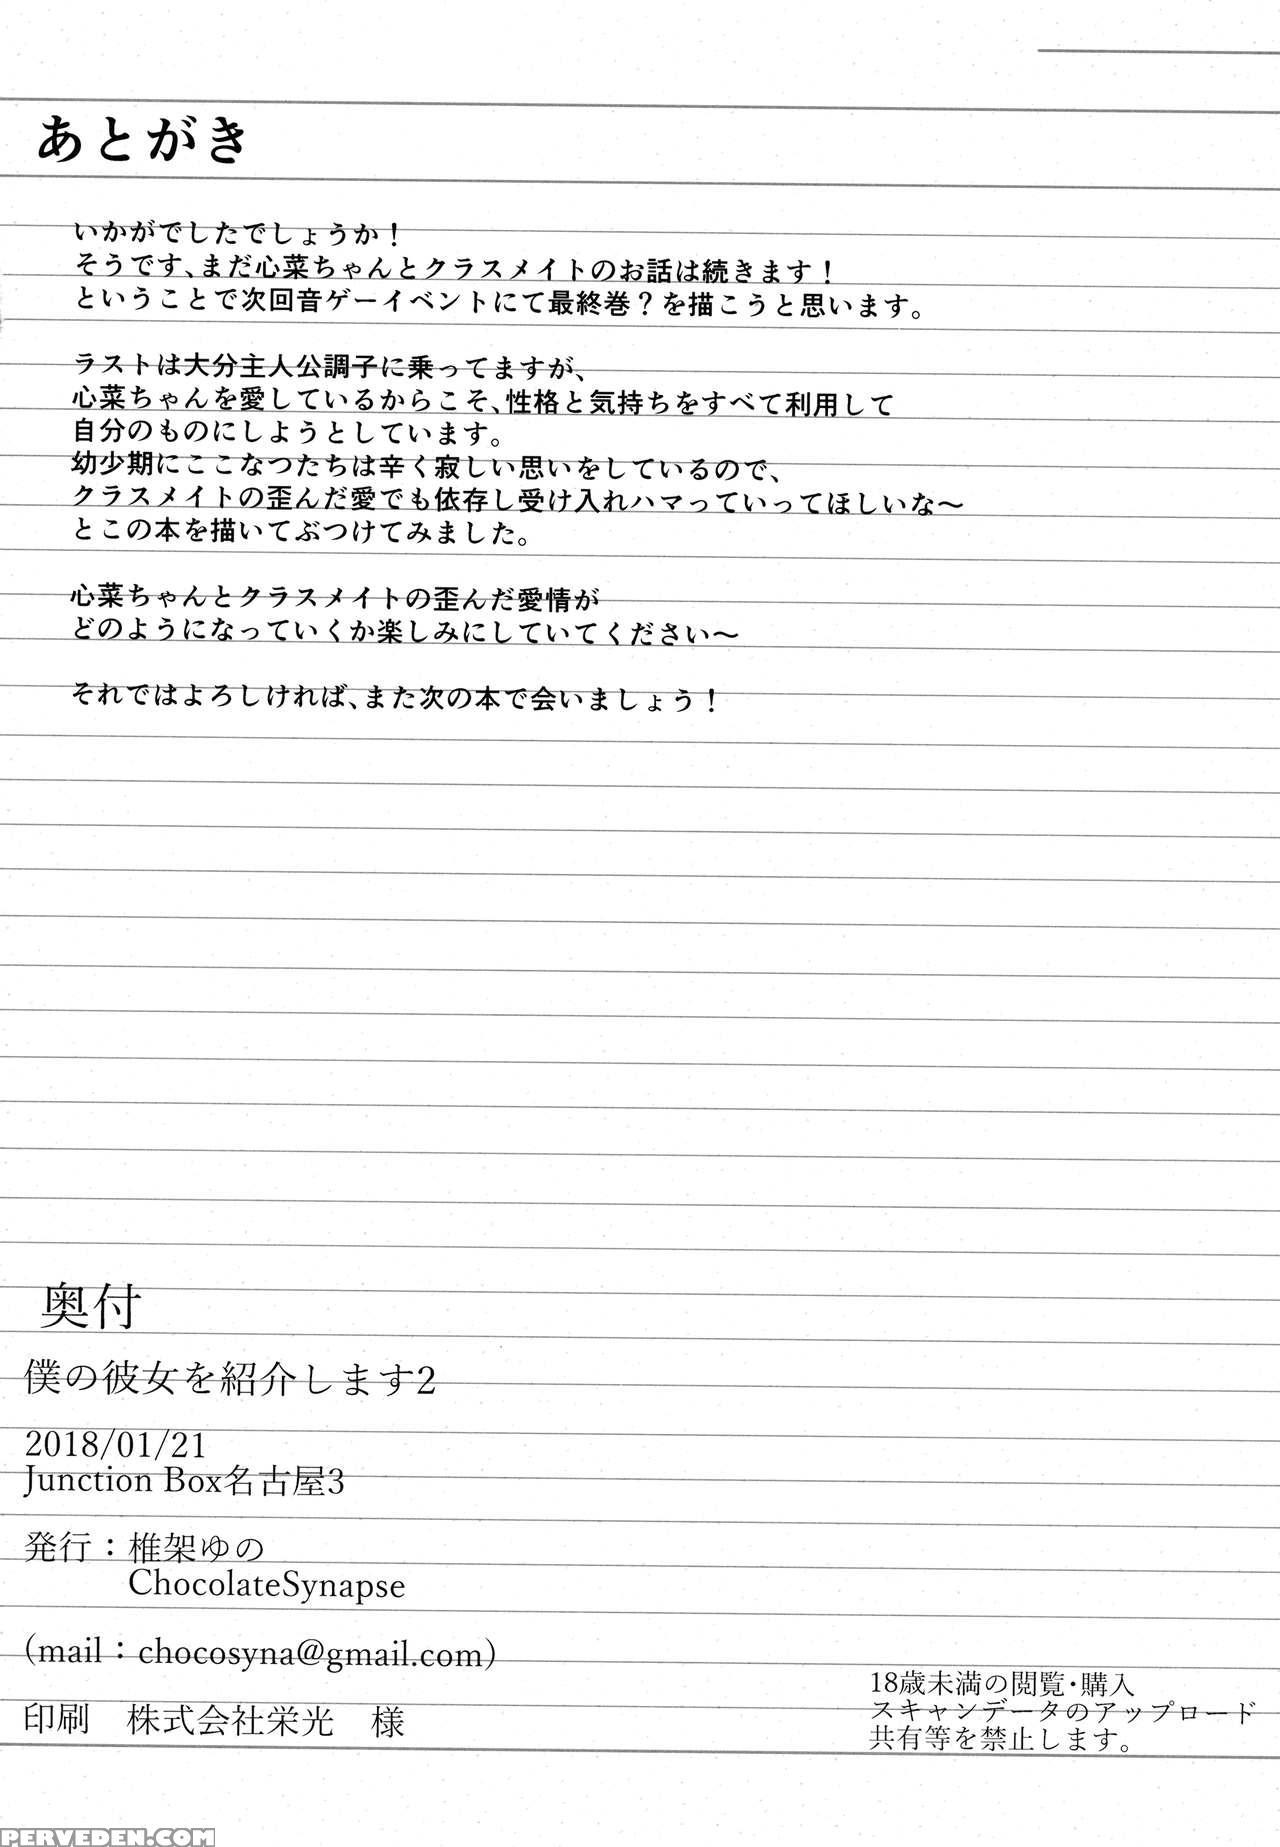 あとがき
いかがでしたでしょうか！
そうです、まだ心菜ちゃんとクラスメイトのお話は続きます！
ということで次回音ゲーイベントにて最終巻？を描こうと思います。
ラストは大分主人公調子に乗ってますが、
心菜ちゃんを愛しているからこそ、性格と気持ちをすべて利用して
自分のものにしようとしています。
幼少期にここなつたちは辛く寂しい思いをしているので、
クラスメイトの歪んだ愛でも依存し受け入れハマっていってほしいな～
とこの本を描いてぶつけてみました。
心菜ちゃんとクラスメイトの歪んだ愛情が
どのようになっていくか楽しみにしていてください～
それではよろしければ、また次の本で会いましょう！
奥付
僕の彼女を紹介します2
2018/01/21
Junction Box名古屋3
発行：椎架ゆの
ChocolateSynapse
(mail：chocosyna@gmail.com)
印刷　株式会社栄光　様
18歳未満の閲覧・購入
スキャンデータのアップロード
共有等を禁止します。
PERVEDEN.COM